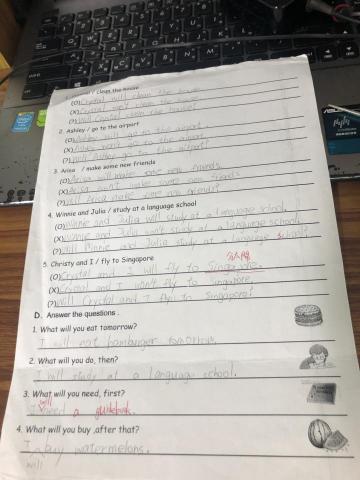 1. Crystal / clean the house
(O) Crystal will clean the house.
(X) Crystal won't clean the house.
(?) Will Crystal clean the house?
2. Ashley / go to the airport
(O) Ashley will go to the airport.
(X) Ashley won't go to the airport.
(?) Will Ashley go to the airport?
3. Arisa / make some new friends
(O) Arisa will make some new friends.
(X) Arisa won't make new friends.
(?) Will Arisa make new friends?
4. Winnie and Julia / study at a language school
(O) Winnie and Julia will study at a language school.
(X) Winnie and won't study at a language school.
(?) Will Winnie and Julia study at language school?
5. Christy and I / fly to Singapore
(O) Crystal and I will fly to Singapore.
(X) Crystal and I won't fly to Singapore.
(?) Will Crystal and I fly to Singapore?
D. Answer the questions .
1. What will you eat tomorrow?
I will eat hamburger tomorrow.
2. What will you do, then?
I will study at a language school.
3. What will you need, first?
will
I need a guidebook.
4. What will you buy ,after that?
I buy watermelons.
will